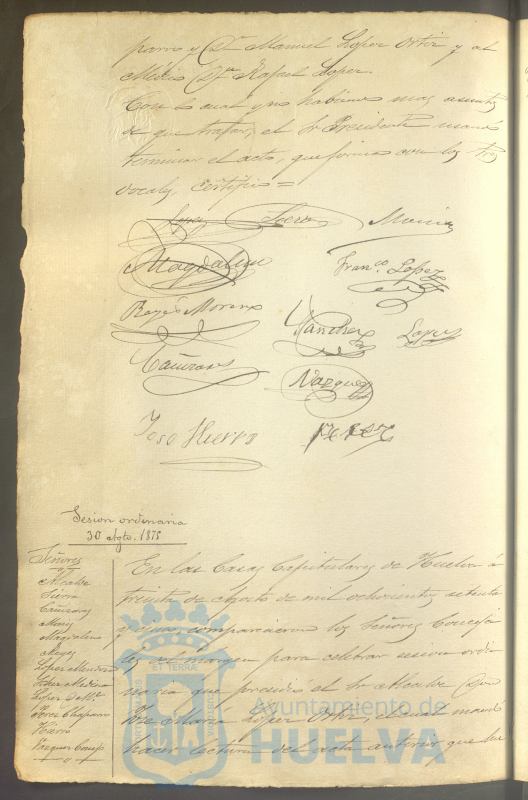 parro y Dn Manuel Lopez Ortiz y al
Medico Dn Rafael Lopez.
Con lo cual y no habiendo mas asuntos
de que tratar, el Sr Presidente mandó
terminar el acto, que firma con los Sres
vocales, certifico =
Lopez Sierra
Magdalena Franco Lopez
Reyes Moreno Sanchez Lopez
Cañizares Vazquez
Toso Hierro
Sesion ordinaria
30 Agto. 1875
Señores
Alcalde
Sierra
Cañizares
Magdalena
Reyes
Lopez Mendoza
Lopez Medina
Lopez D. Ml
Perez Chaparro
Hierro
Vazquez
En las Casas Capitulares de Huelva á
treinta de Agosto de mil ochocientos setenta
y cinco comparecieron los Señores Conceja
les al margen para celebrar sesion ordi
naria que presidió el Sr Alcalde Don
José Maria Lopez Ortiz, el cual mandó
hacer lectura del acta anterior, que fué
ET TERRÆ
Ayuntamiento de
HUELVA